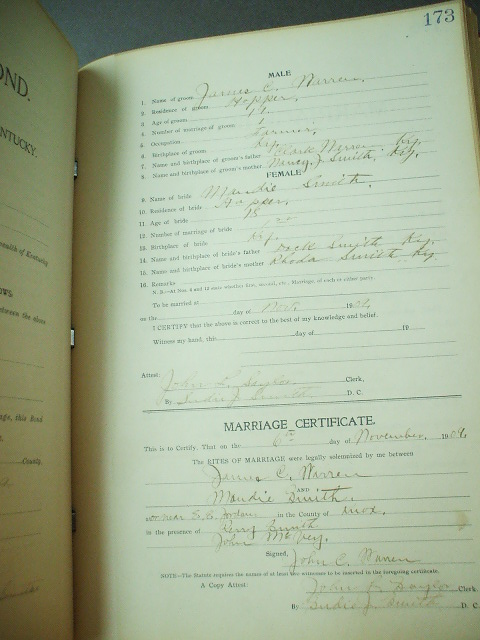 OND.
ENTUCKY.
173
MALE
1. Name of groom James C. Warren,
2. Residence of groom Hopper,
3. Age of groom
4. Number of marriage of groom
5. Occupation Farmer,
6. Birthplace of groom Ky.
7. Name and birthplace of groom's father Warren Ky.
8. Name and birthplace of groom's mother Nancy J Smith, Ky.
FEMALE
9. Name of bride Maudie Smith.
10. Residence of bride Hopper,
11. Age of bride 18
12. Number of marriage of bride
13. Birthplace of bride Ky.
14. Name and birthplace of bride's father Smith Ky.
15. Name and birthplace of bride's mother Rhoda Smith Ky.
16. Remarks
N. B.—At Nos. 4 and 12 state whether first, second, etc. Marriage, of each or either party.
To be married at
on the day of 190
I CERTIFY that the above is correct to the best of my knowledge and belief.
Witness my hand, this day of 19
Attest:
John Clerk,
By Smith D. C.
MARRIAGE CERTIFICATE.
This is to Certify, That on the 6th day of November, 190
The RITES OF MARRIAGE were legally solemnized by me between
James C. Warren
AND
Maudie Smith.
near in the County of Knox.
in the presence of Smith
John
Signed, John C. Warren
NOTE—The Statute requires the names of at least two witnesses to be inserted in the foregoing certificate.
A Copy Attest: John Clerk
By Smith D. C.